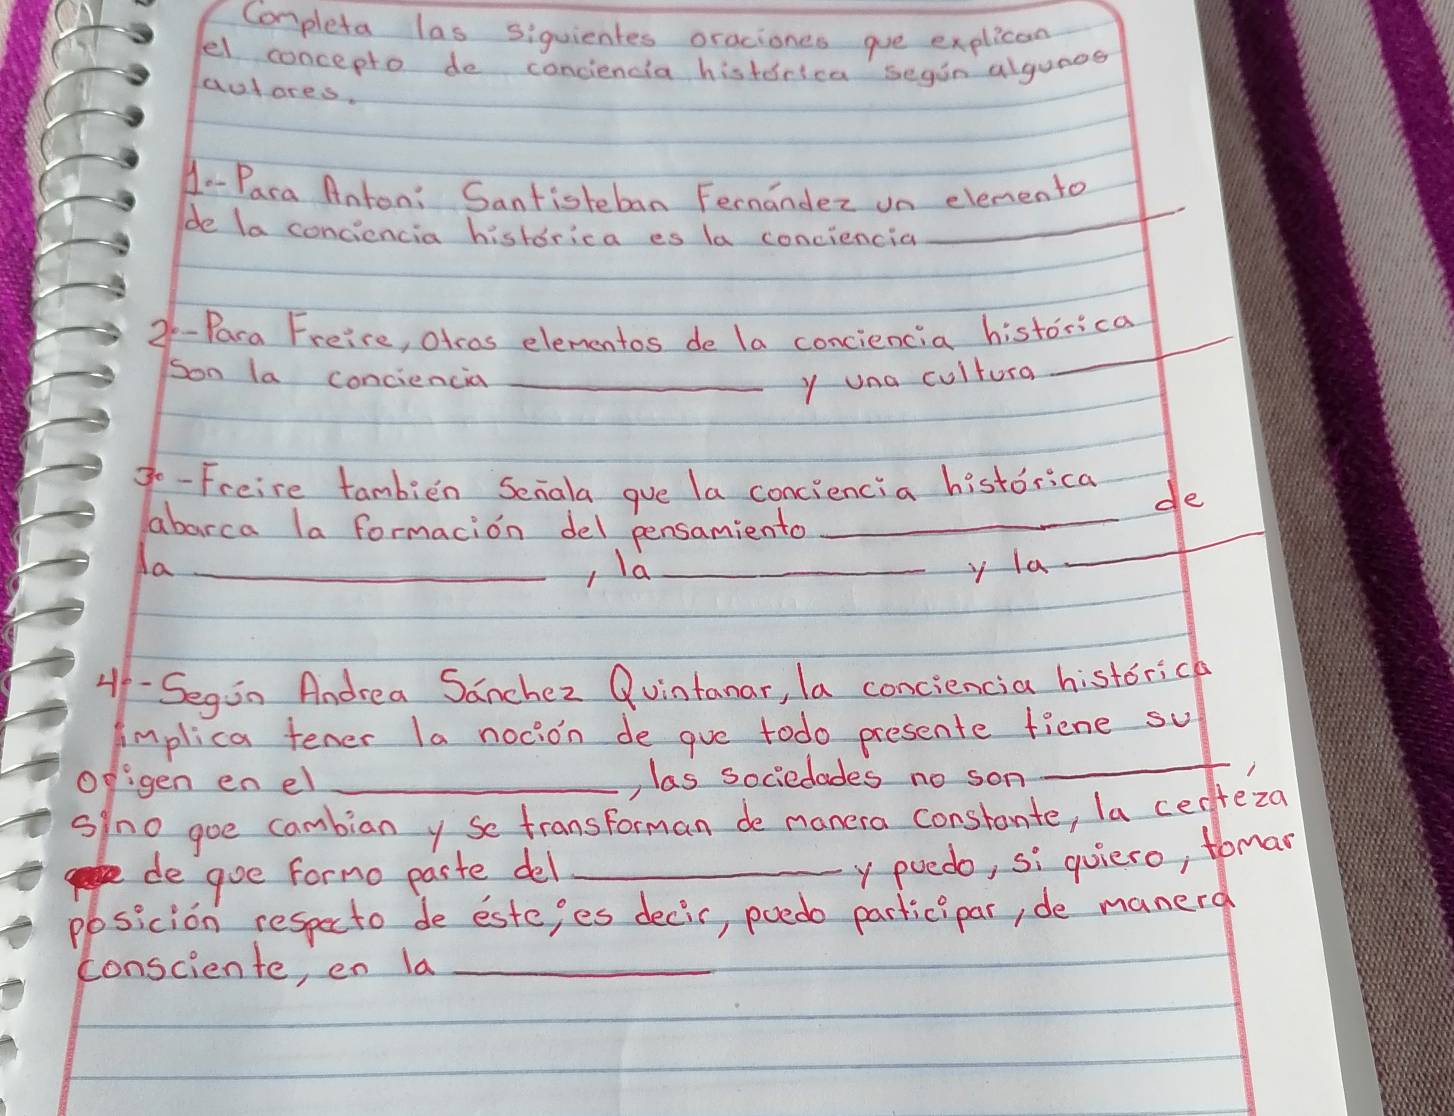 Completa las siguientes oraciones que explican
el concepto de conciencia histórica según algunos
autores.
1.- Para Antoni Santisteban Fernández un elemento
de la conciencia histórica es la conciencia ____________
2.- Para Freire, otros elementos de la conciencia histórica
son la conciencia ____________ y una cultura ____________
3.- Freire también señala que la conciencia histórica
abarca la formación del pensamiento ____________ de
la ____________, la ____________ y la ____________
4.- Según Andrea Sánchez Quintanar, la conciencia histórica
implica tener la noción de que todo presente tiene su
origen en el ____________, las sociedades no son ____________,
sino que cambian y se transforman de manera constante, la certeza
de que formo parte del ____________ y puedo, si quiero, tomar
posición respecto de éste; es decir, puedo participar, de manera
consciente, en la ____________